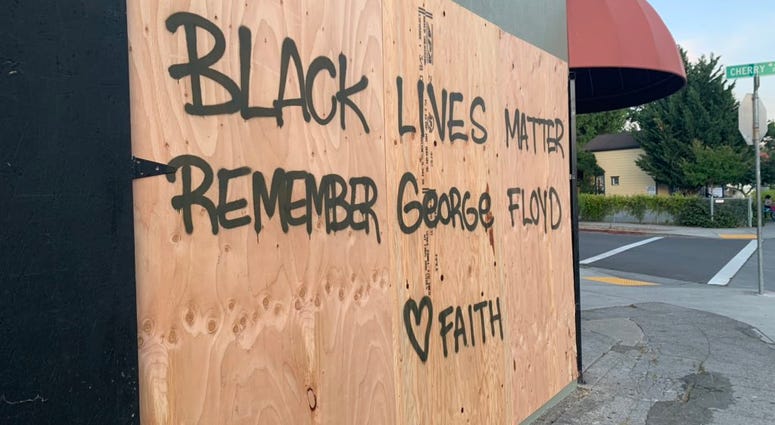 BLACK LIVES MATTER
REMEMBER GEORGE FLOYD
♡ FAITH
CHERRY